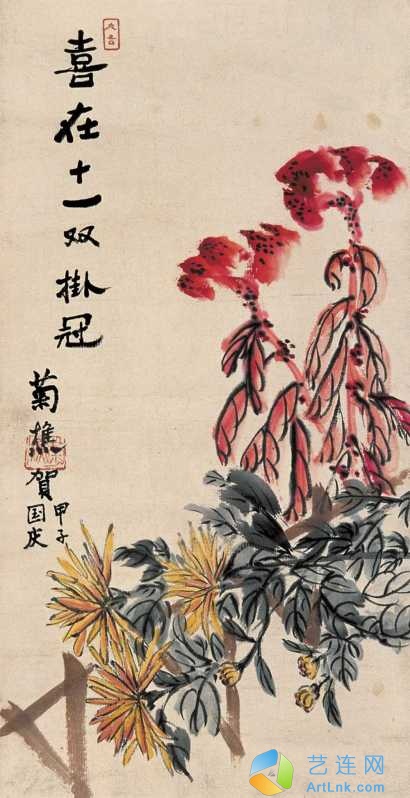 喜在十一双掛冠
菊樵賀
甲子
国庆
艺连网
ArtLnk.com